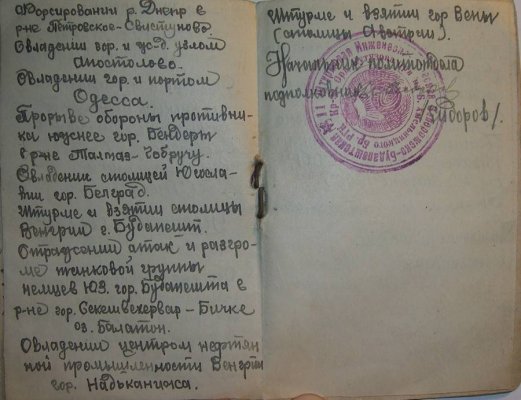 Форсировании р. Днепр в
р-не Петровское-Свистуново
Овладении гор. и ж-д. узлом
Апостолово.
Овладении гор. и портом
Одесса.
Прорыве обороны противни-
ка южнее гор. Бендеры
в р-не Талмаз-Чобручу.
Овладение столицей Югосла-
вии гор. Белград.
Штурме и взятии столицы
Венгрии г. Будапешт.
Отражении атак и разгро-
ме танковой группы
немцев ЮЗ. гор. Будапешта в
р-не гор. Секешвехервар-Бичке
оз. Балатон.
Овладении центром нефтян
ной промышленности Венгрии
гор. Надьканижа.
Штурме и взятии гор Вены
(столицы Австрии).
Начальник политотдела
подполковник
Сидоров/.